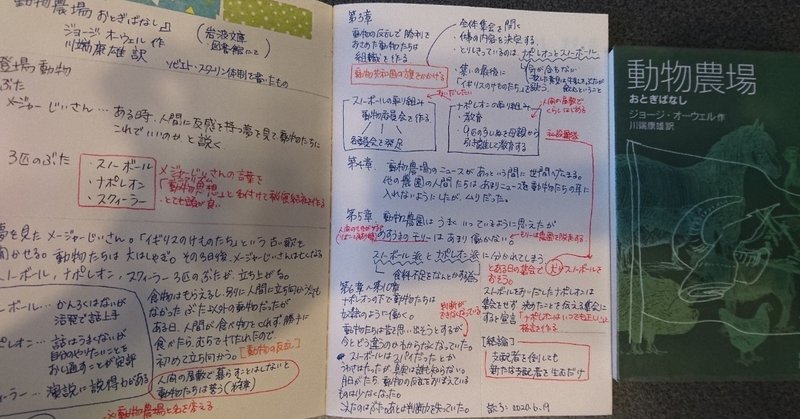 動物農場 おとぎばなし』
ジョージ・オーウェル 作
川端康雄 訳
(岩波文庫
図書館にて)
ソビエト・スターリン体制で書いたもの
登場動物
ぶた
メージャーじいさん…ある時、人間に反感を持つ夢を見て動物たちに
これでいいのかと説く
3匹のぶた
・スノーボール
・ナポレオン
・スクィーラー
メージャーじいさんの言葉を
「動物主義」と名付けて
・とても頭が良い
夢を見たメージャーじいさん。「イギリスのけものたち」という古い歌を
聞かせる。動物たちは大はしゃぎ。その3日後、メージャーじいさんは亡くなる
スノーボール、ナポレオン、スクィーラー 3匹のぶたが、立ち上がる。
スノーボール…かんろくはないが
活発で話上手
ナポレオン…話はうまくないが
自分のやりたいことを
おし通すことが定評
スクィーラー…演説に説得力がある
食物はもらえるし、別に人間に立向かう気も
なかったぶた以外の動物だったが
ある日、人間が食べ物をくれず勝手に
食べたら、むちで打たれたので
初めて立ち向かう。[動物の反乱]
人間の屋敷で暮らすことはしないと
動物たちは誓う
※動物農場と名を変える
第3章
動物の反乱で勝利を
おさめた動物たちは
組織を作る
動物共和国の旗をかかげる
全体集会を開く
仕事の内容を決定する
とりしきっているのはナポレオンとスノーボール
集いの最後に
「イギリスのけものたち」を歌う
スノーボールの取り組み
動物委員会を作る
各委員会を発足
ナポレオンの取り組み
・教育
9匹の子いぬを母親から
引き離して教育する
第4章 動物農場のニュースがあっという間に世間へ広まる。
他の農園の人間たちはあまりニュースを動物たちの耳に
入れないようにしたが、ムリだった。
第5章 動物農園はうまくいっているように思えたが
めすうまのモリーはあまり働かない。
モリーは農園を脱走する
スノーボール派とナポレオン派に分かれてしまう
食料不足をなんとかする為
とある日の集会で犬がスノーボールを
おそう。
スノーボールをおい出したナポレオンは
集会をせず 決めたことを伝える集会に
すると宣言 「ナポレオンはいつでも正しい」と
格言を作る
第6章〜第10章
ナポレオンの下で動物たちは
奴隷のように働く。
動物たちは昔を思い出そうとするが
今とどう違うのかもわからなくなっていた。
判断が
できなくなっている
・スノーボールはスパイだったとか
うわさはたったが、真実は誰も知らない。
月日がたち 動物の反乱をおぼえている
ものはいなくなった。
[結論]
支配者を倒しても
新たな支配者を生むだけ
読了 2020.6.19
動物農場
おとぎばなし
ジョージ・オーウェル作
川端康雄訳